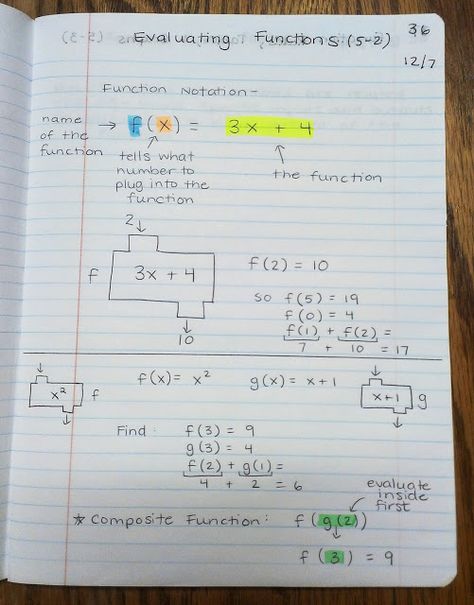 36
Evaluating Functions (5-2)
12/7
Function Notation -
name of the function → f(x) = 3x + 4
tells what number to plug into the function
the function
2
f 3x + 4
10
f(2) = 10
so f(5) = 19
f(0) = 4
f(1) + f(2) =
7 + 10 = 17
x² f
f(x) = x²
g(x) = x+1
x+1 g
Find: f(3) = 9
g(3) = 4
f(2) + g(1) =
4 + 2 = 6
evaluate inside first
* Composite Function: f(g(2))
f(3) = 9